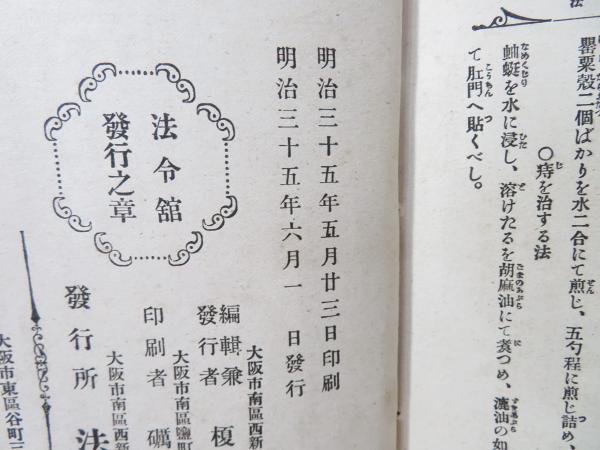 法
罌粟殼二個ばかりを水二合にて煎じ、五勺程に煎じ詰め、
〇痔を治する法
蚰蜒を水に浸し、溶けたるを胡麻油にて煑つめ、漉油の如
て肛門へ貼くべし。
明治三十五年五月廿三日印刷
明治三十五年六月一日發行
大阪市南區西新
編輯兼
發行者 榎
大阪市南區鹽町
印刷者 礪
大阪市南區西新
發行所 法
大阪市東區谷町三
法令舘
發行之章